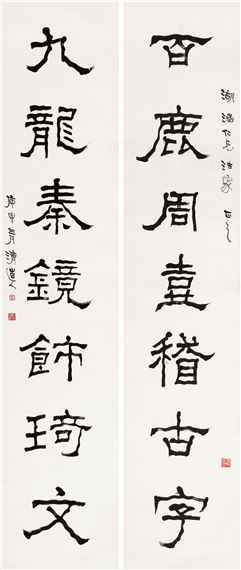 百鹿周壺稽古字
仁兄法家正之
九龍秦鏡飾琦文
庚申 月清道人